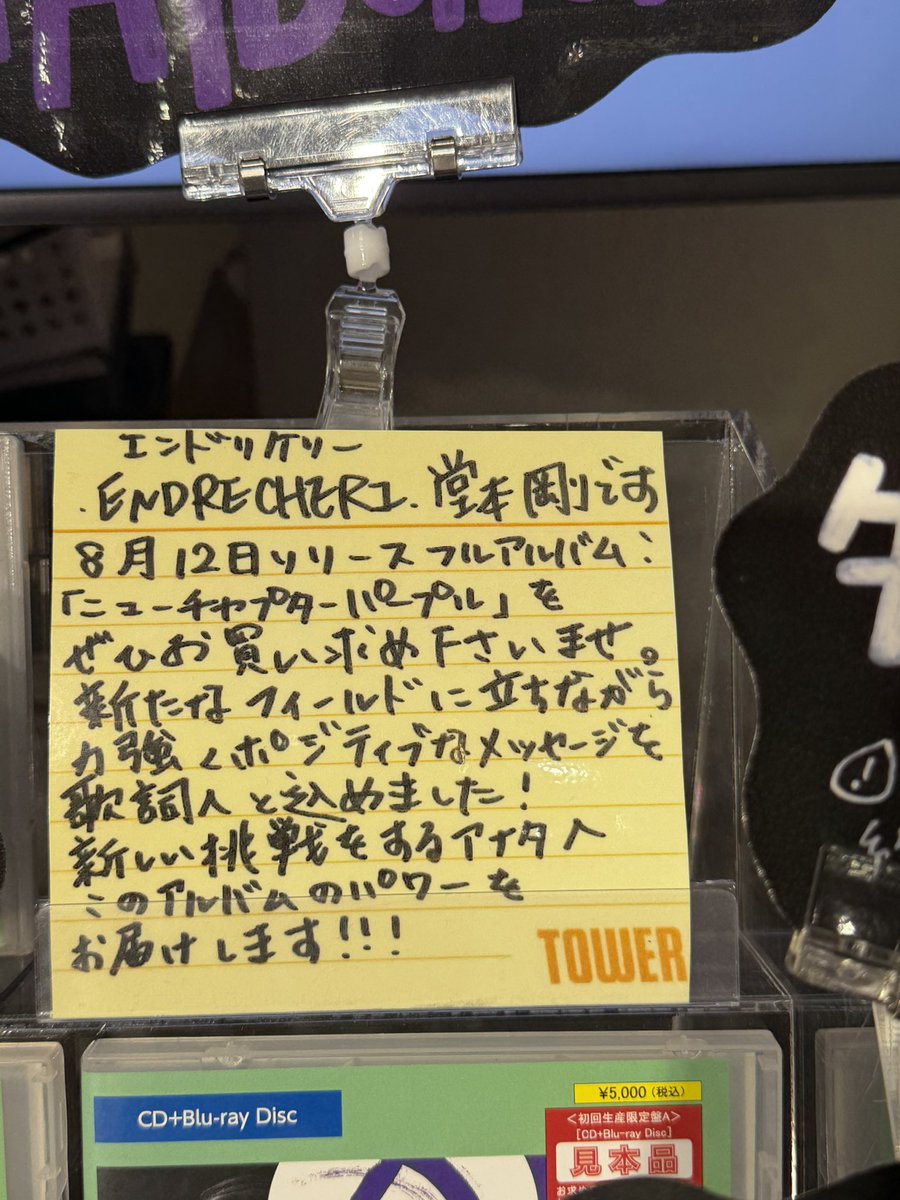 エンドリケリー
.ENDRECHERI. 堂本剛です
8月12日リリースフルアルバム:
「ニューチャプターパープル」を
ぜひお買い求め下さいませ。
新たなフィールドに立ちながら
力強くポジティブなメッセージを
歌詞へと込めました!
新しい挑戦をするアナタへ
このアルバムのパワーを
お届けします!!!
TOWER
CD+Blu-ray Disc
¥5,000(税込)
<初回生産限定盤A>
[CD+Blu-ray Disc]
見本品